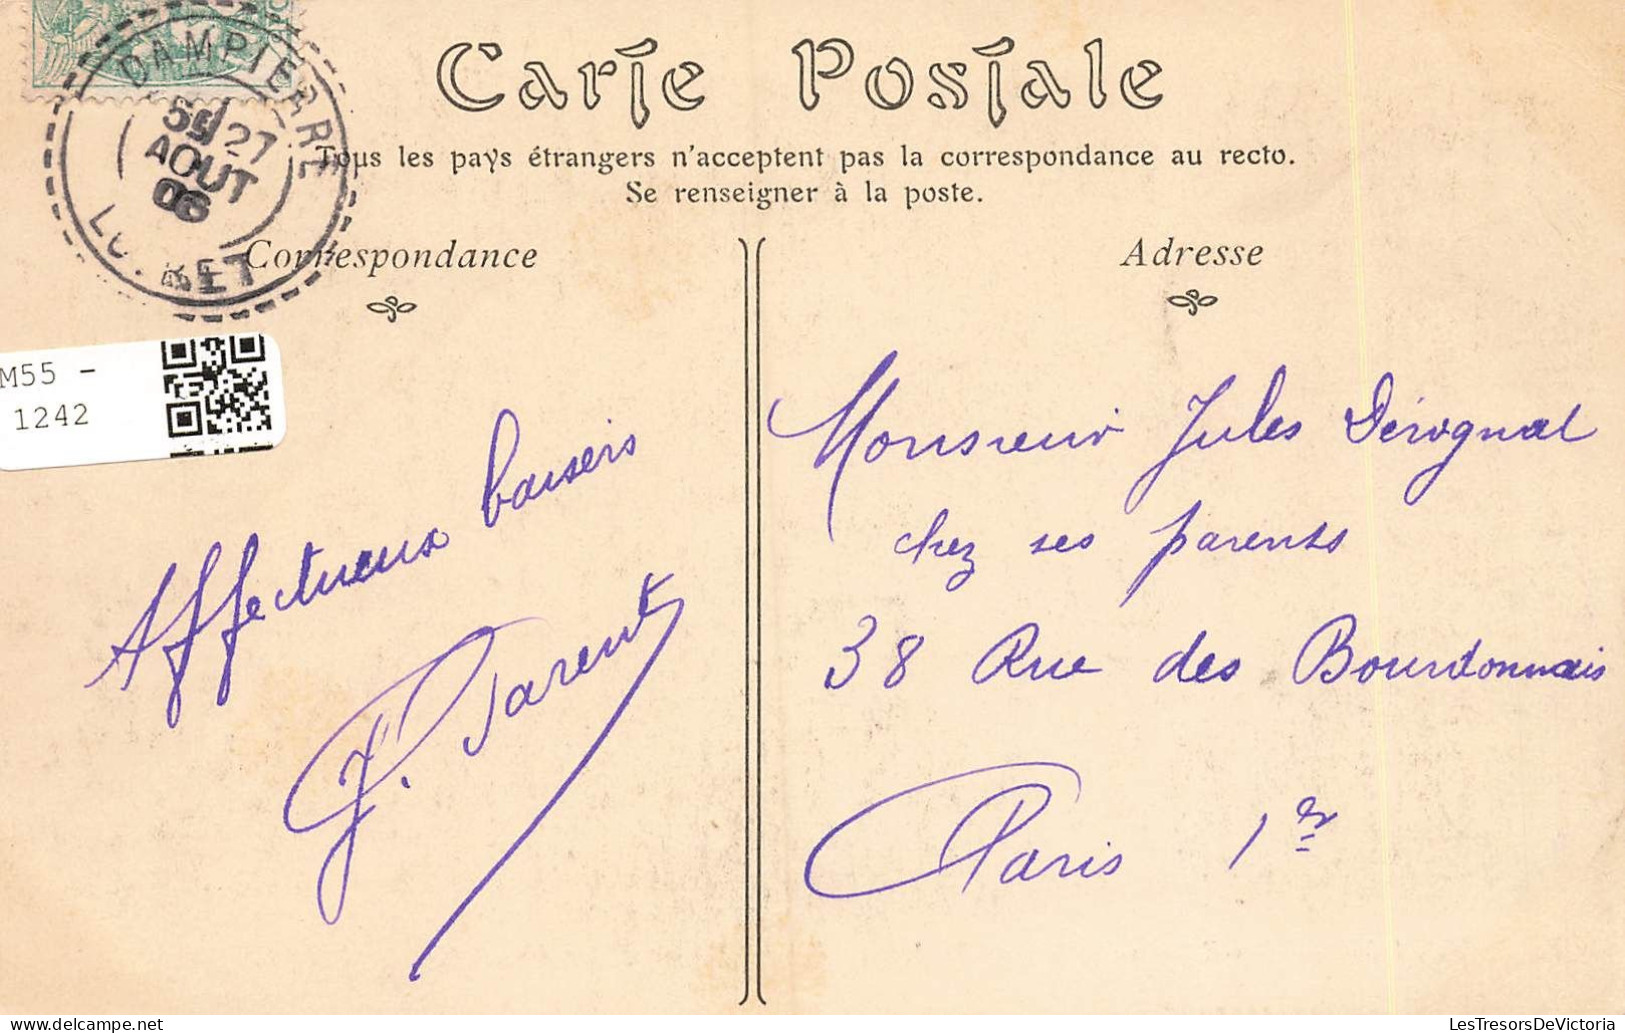 Carte Postale
Tous les pays étrangers n'acceptent pas la correspondance au recto.
Se renseigner à la poste.
DAMPIERRE
27
AOUT
06
Correspondance
Adresse
M55 -
1242
Affectueux baisers
J. Parent
Monsieur Jules Dérognat
chez ses parents
38 Rue des Bourdonnais
Paris 1er
LesTresorsDeVictoria